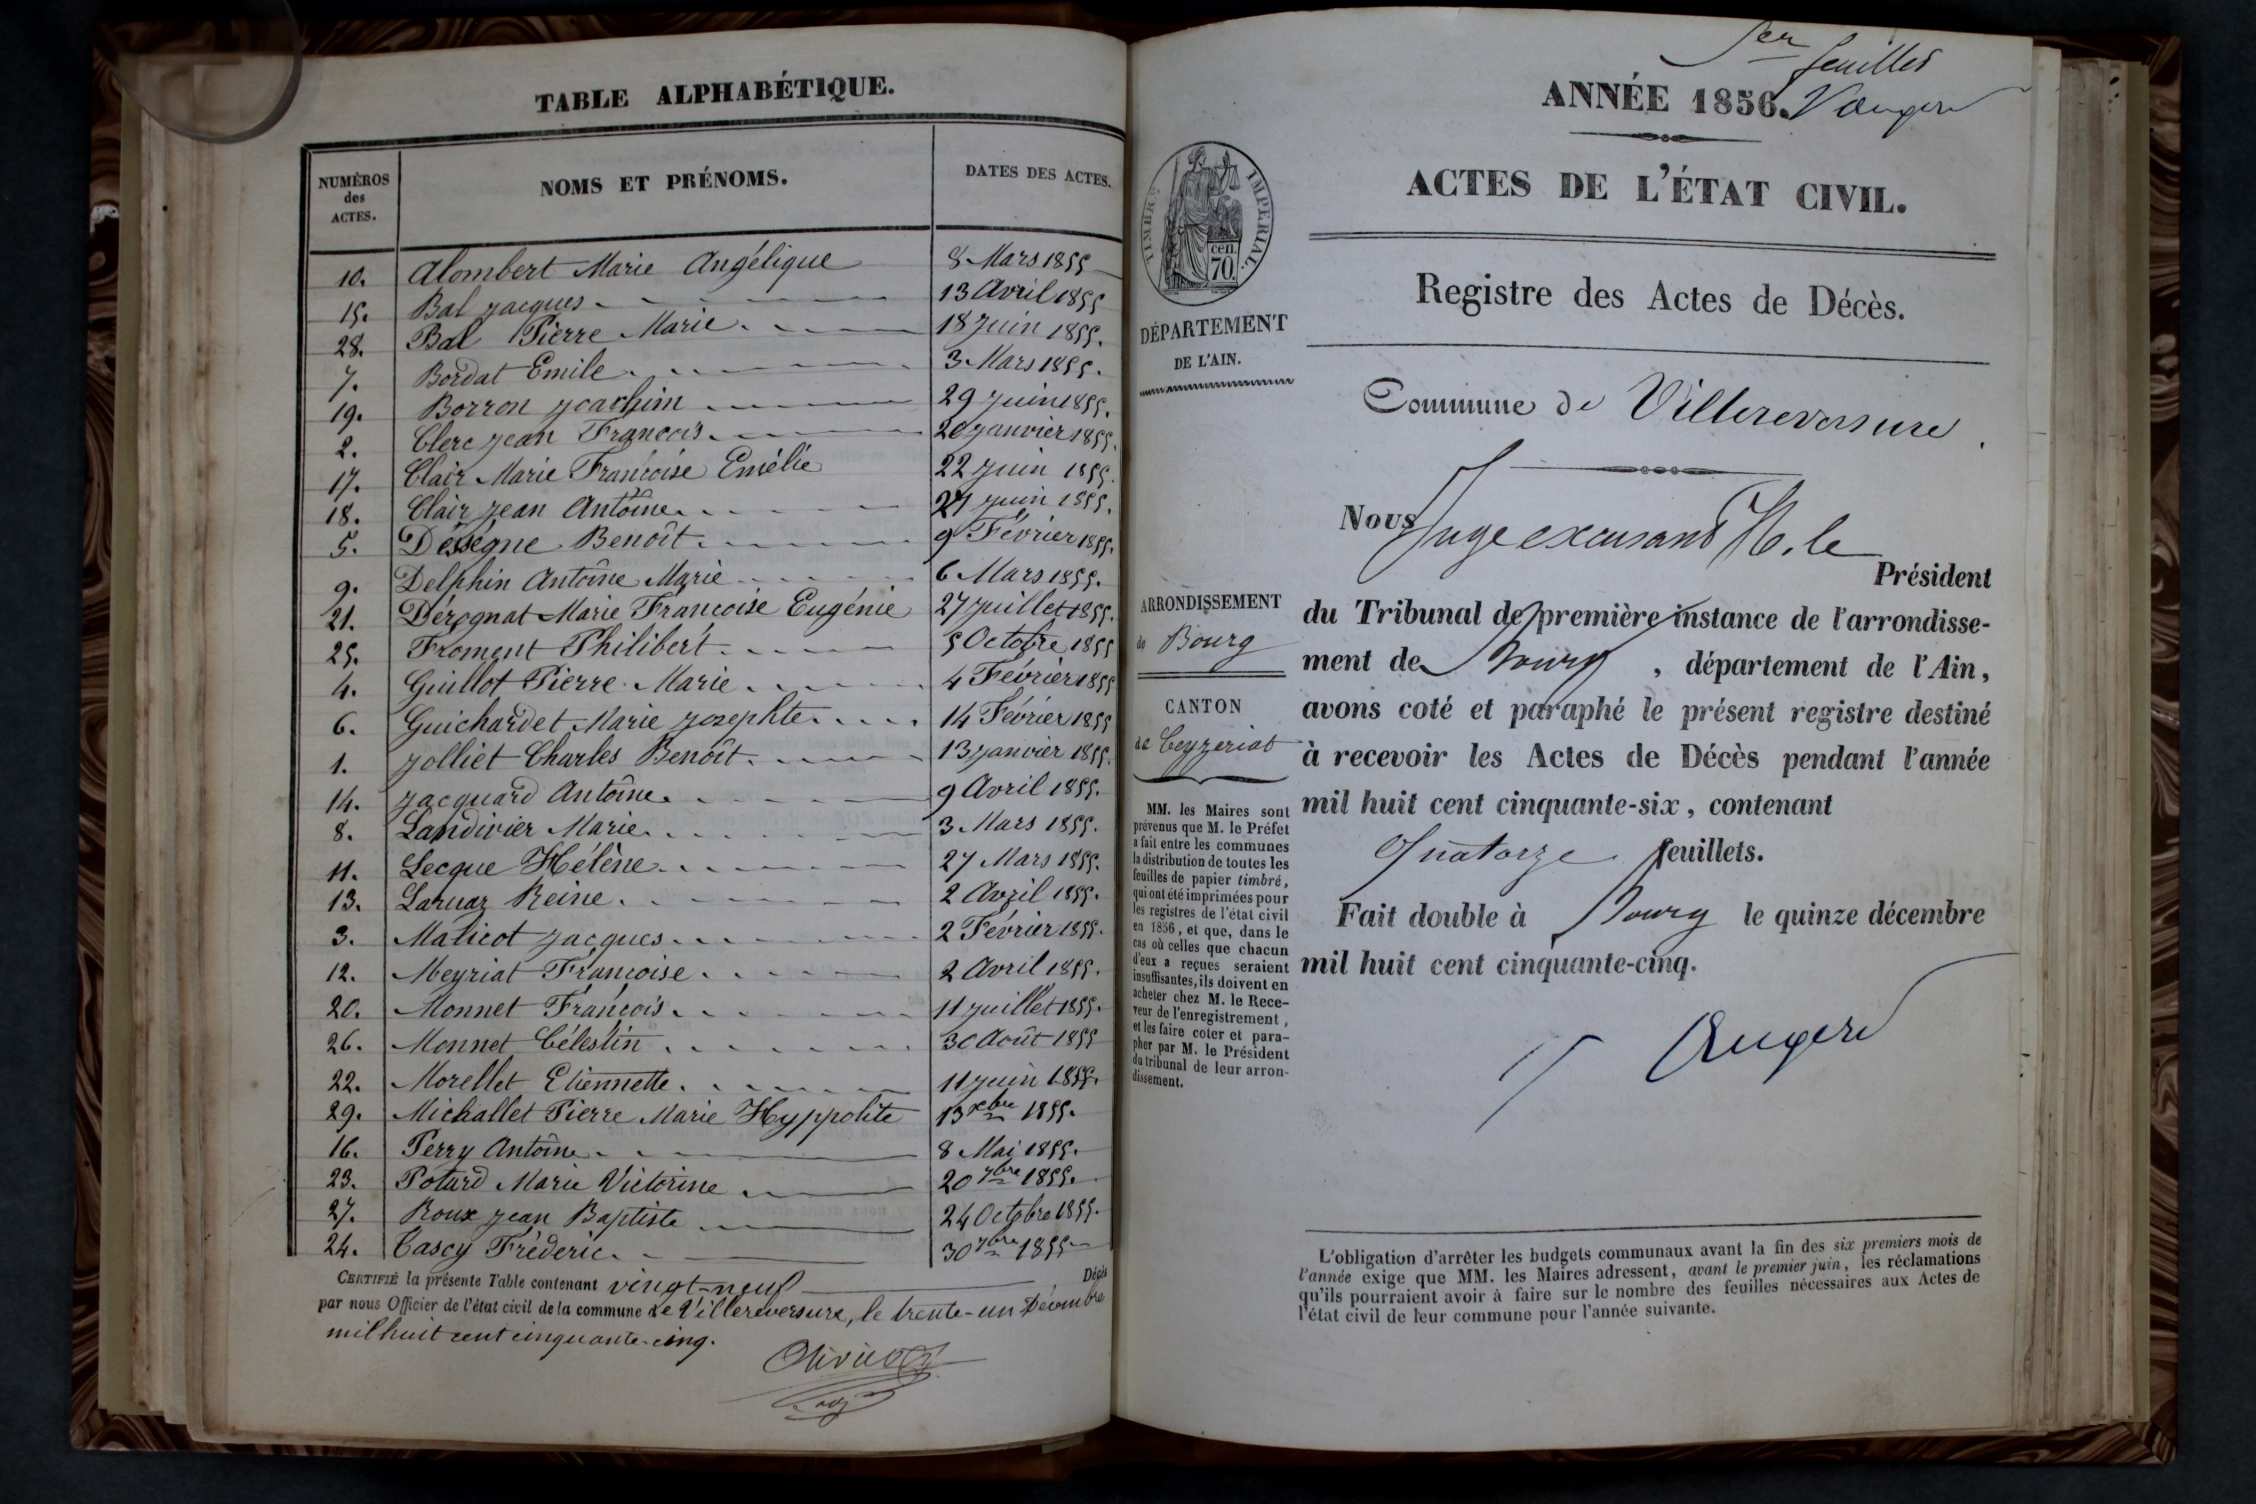 TABLE ALPHABÉTIQUE.
NUMÉROS des ACTES. NOMS ET PRÉNOMS. DATES DES ACTES.
10. Alombert Marie Angélique 8 Mars 1855
15. Bal Jacques 13 Avril 1855
28. Bal Pierre Marie 18 Juin 1855.
7. Bordat Emile 3 Mars 1855.
19. Borron Joachim 29 Juin 1855.
2. Clerc Jean François 20 Janvier 1855.
17. Clair Marie Françoise Emélie 22 Juin 1855.
18. Clair Jean Antoine 27 Juin 1855.
5. Déségne Benoît 9 Février 1855.
9. Delphin Antoine Marie 6 Mars 1855.
21. Dérognat Marie Françoise Eugénie 27 Juillet 1855.
25. Froment Philibert 5 Octobre 1855
4. Guillot Pierre Marie 4 Février 1855
6. Guichardet Marie Josephte 14 Février 1855
1. Jolliet Charles Benoît 13 Janvier 1855.
14. Jacquard Antoine 9 Avril 1855.
8. Landivier Marie 3 Mars 1855.
11. Lecque Hélène 27 Mars 1855.
13. Laruaz Reine 2 Avril 1855.
3. Maticot Jacques 2 Février 1855.
12. Meyriat Françoise 2 Avril 1855.
20. Monnet François 11 Juillet 1855.
26. Monnet Célestin 30 Août 1855
22. Morellet Etiennette 11 Juin 1855.
29. Michallet Pierre Marie Hyppolite 13 xbre 1855.
16. Perry Antoine 8 Mai 1855.
23. Poturd Marie Victorine 20 7bre 1855.
27. Roux Jean Baptiste 24 Octobre 1855.
24. Cascy Fréderic 30 7bre 1855
CERTIFIÉ la présente Table contenant vingt-neuf Décès
par nous Officier de l'état civil de la commune de Villereversure, le trente-un Décembre
mil huit cent cinquante-cinq.
1er feuillet
ANNÉE 1856.
ACTES DE L'ÉTAT CIVIL.
Registre des Actes de Décès.
TIMBRE IMPERIAL.
cen. 70.
DÉPARTEMENT
DE L'AIN.
Commune de Villereversure.
Nous Juge excusant M. le
Président
du Tribunal de première instance de l'arrondisse-
ment de Bourg, département de l'Ain,
avons coté et paraphé le présent registre destiné
à recevoir les Actes de Décès pendant l'année
mil huit cent cinquante-six, contenant
Quatorze feuillets.
Fait double à Bourg le quinze décembre
mil huit cent cinquante-cinq.
ARRONDISSEMENT
de Bourg
CANTON
de Ceyzeriat
MM. les Maires sont
prévenus que M. le Préfet
a fait entre les communes
la distribution de toutes les
feuilles de papier timbré,
qui ont été imprimées pour
les registres de l'état civil
en 1856, et que, dans le
cas où celles que chacun
d'eux a reçues seraient
insuffisantes, ils doivent en
acheter chez M. le Rece-
veur de l'enregistrement,
et les faire coter et para-
pher par M. le Président
du tribunal de leur arron-
dissement.
L'obligation d'arrêter les budgets communaux avant la fin des six premiers mois de
l'année exige que MM. les Maires adressent, avant le premier juin, les réclamations
qu'ils pourraient avoir à faire sur le nombre des feuilles nécessaires aux Actes de
l'état civil de leur commune pour l'année suivante.